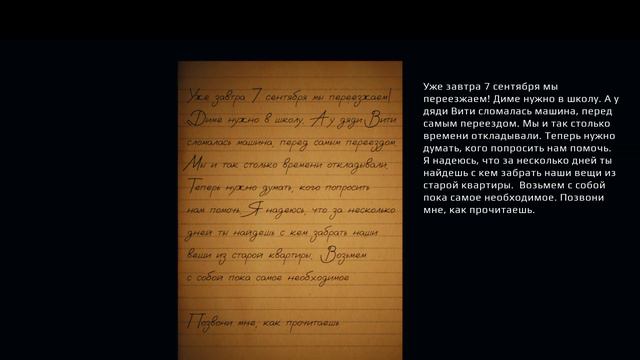 Уже завтра 7 сентября мы переезжаем!
Диме нужно в школу. А у дяди Вити
сломалась машина, перед самым переездом.
Мы и так столько времени откладывали.
Теперь нужно думать, кого попросить
нам помочь. Я надеюсь, что за несколько
дней ты найдешь с кем забрать наши
вещи из старой квартиры. Возьмем
с собой пока самое необходимое
Позвони мне, как прочитаешь
Уже завтра 7 сентября мы
переезжаем! Диме нужно в школу. А у
дяди Вити сломалась машина, перед
самым переездом. Мы и так столько
времени откладывали. Теперь нужно
думать, кого попросить нам помочь.
Я надеюсь, что за несколько дней ты
найдешь с кем забрать наши вещи из
старой квартиры. Возьмем с собой
пока самое необходимое. Позвони
мне, как прочитаешь.